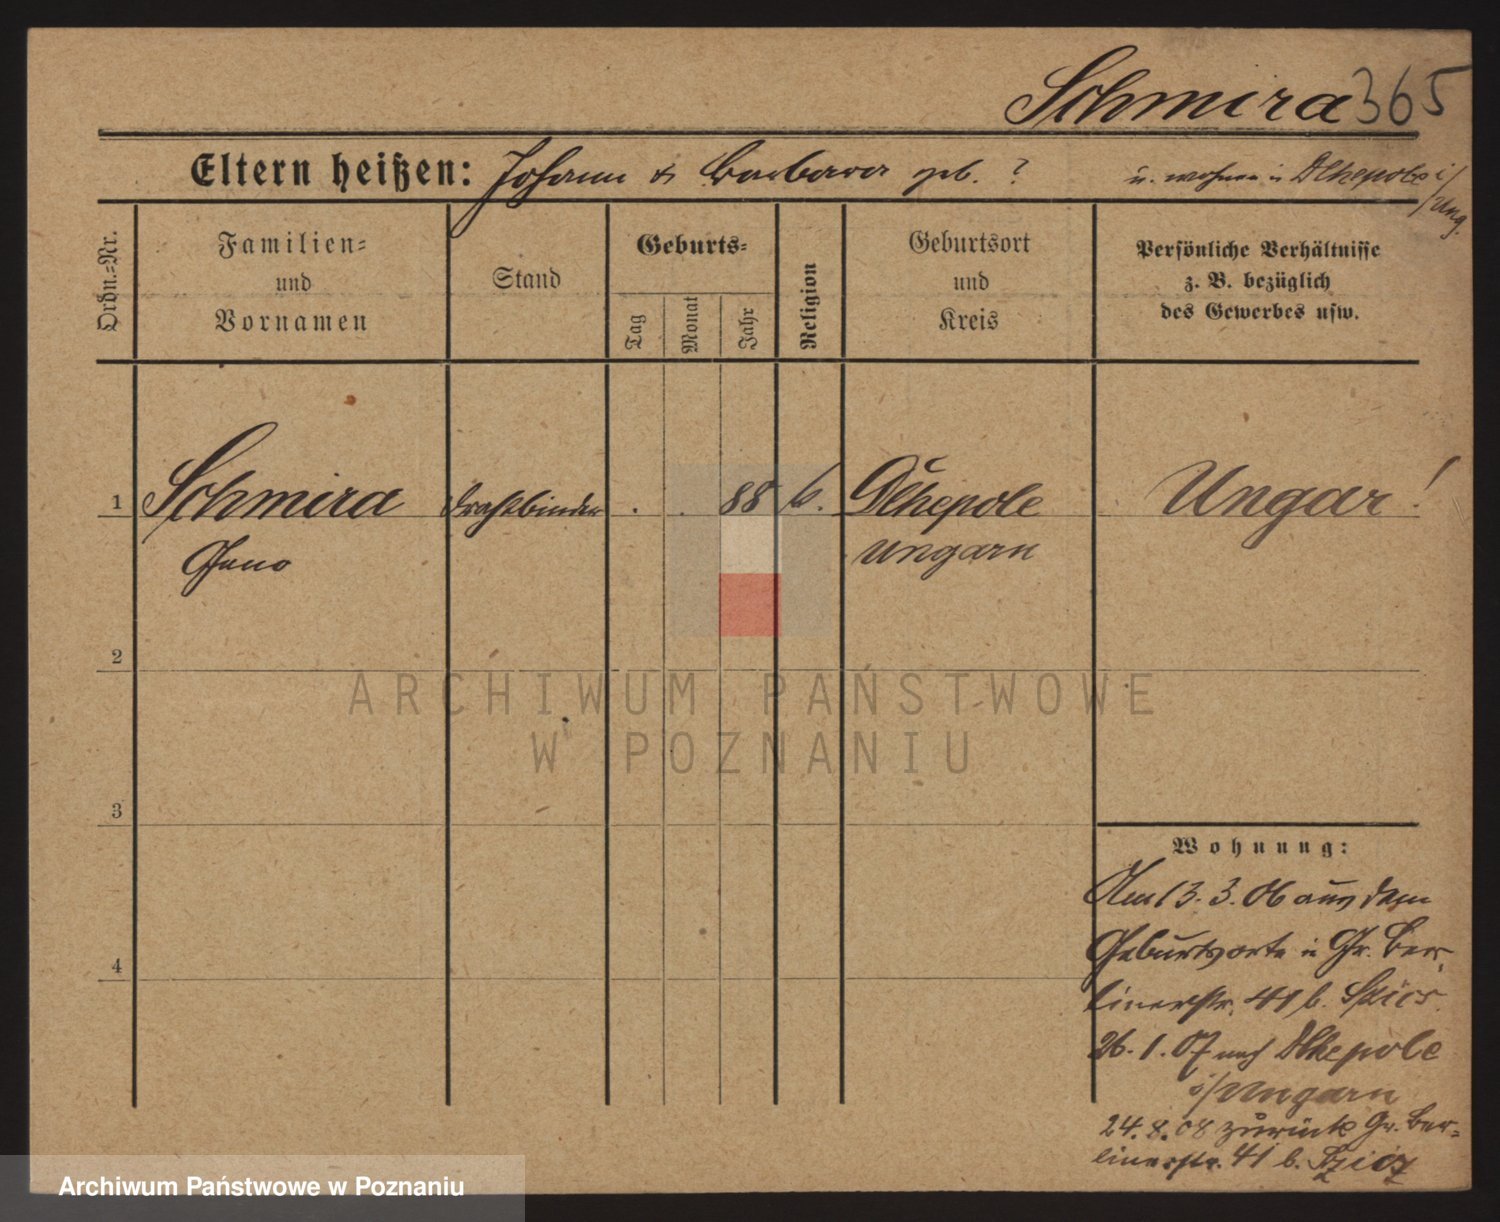 Schmira 365
Eltern heißen: Johann & Barbara geb. ? u. wohnen in Dlhepole i/Ung.
Ordn.-Nr.
Familien- und Vornamen
Stand
Geburts-
Tag
Monat
Jahr
Religion
Geburtsort und Kreis
Persönliche Verhältnisse z. B. bezüglich des Gewerbes usw.
1 Schmira Drahtbinder . . 88 k. Dlhepole Ungar!
Ungarn
2
3
4
ARCHIWUM PAŃSTWOWE
W POZNANIU
Wohnung:
Am 13. 3. 06 aus dem
Geburtsorte in Gr. Ber-
linerstr. 41 b.
26. 1. 07 nach Dlhepole
i/Ungarn
24. 8. 08 zurück Gr. Ber-
linerstr. 41 b.
Archiwum Państwowe w Poznaniu